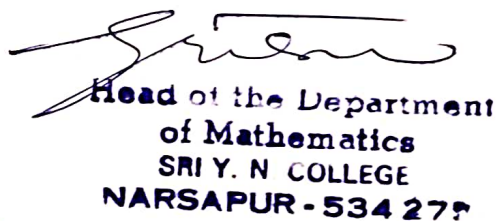 Head of the Department
of Mathematics
SRI Y. N COLLEGE
NARSAPUR - 534 275